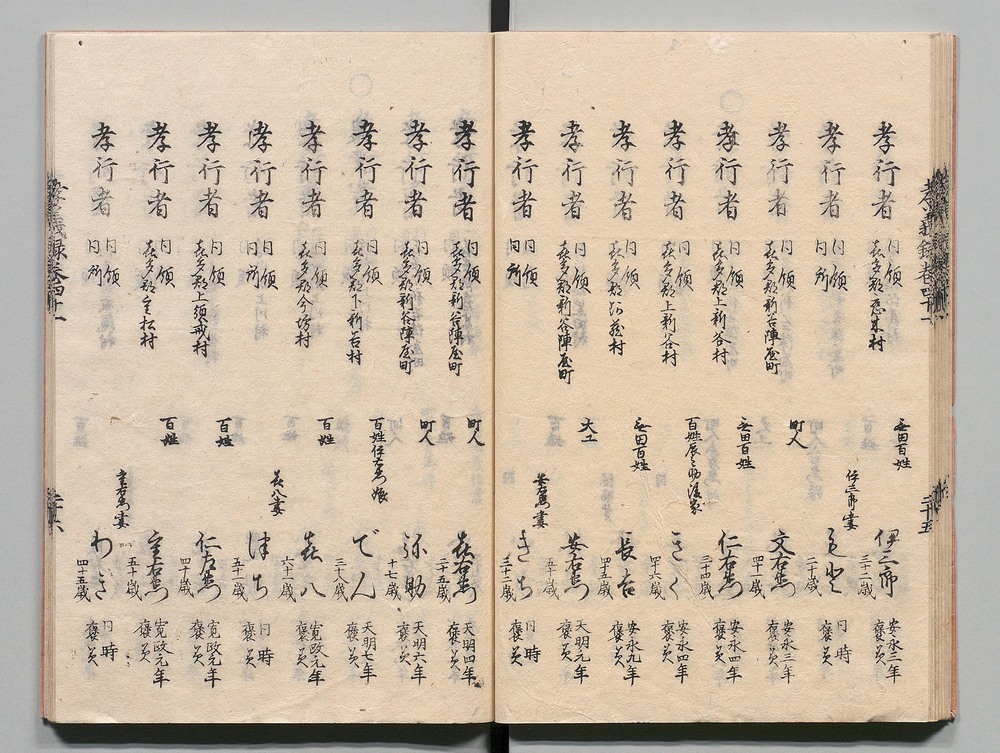 孝行者 同領 喜多郡恋木村 無田百姓 伊三郎 三十二歳 安永三年 褒美
孝行者 同領 同所 伊三郎妻 二十歳 同時 褒美
孝行者 同領 喜多郡新谷陣屋町 町人 文右衛門 四十一歳 安永三年 褒美
孝行者 同領 喜多郡上新谷村 無田百姓 仁右衛門 三十四歳 安永四年 褒美
孝行者 同領 喜多郡上新谷村 百姓辰之助後家 きく 四十六歳 安永四年 褒美
孝行者 同領 喜多郡村 無田百姓 長吉 四十五歳 安永九年 褒美
孝行者 同領 喜多郡新谷陣屋町 大工 安右衛門 五十歳 天明元年 褒美
孝行者 同領 同所 安右衛門妻 きち 三十二歳 同時 褒美
孝行者 同領 喜多郡新谷陣屋町 町人 喜右衛門 二十五歳 天明四年 褒美
孝行者 同領 喜多郡新谷陣屋町 町人 弥助 十七歳 天明六年 褒美
孝行者 同領 喜多郡下新谷村 百姓伊右衛門娘 でん 三十八歳 天明七年 褒美
孝行者 同領 喜多郡今坊村 百姓 喜八 六十一歳 寛政元年 褒美
孝行者 同領 同所 喜八妻 はち 五十一歳 同時 褒美
孝行者 同領 喜多郡上須戒村 百姓 仁右衛門 四十歳 寛政元年 褒美
孝行者 同領 喜多郡村 百姓 右衛門 五十歳 寛政元年 褒美
孝行者 同領 同所 右衛門妻 わき 四十五歳 同時 褒美